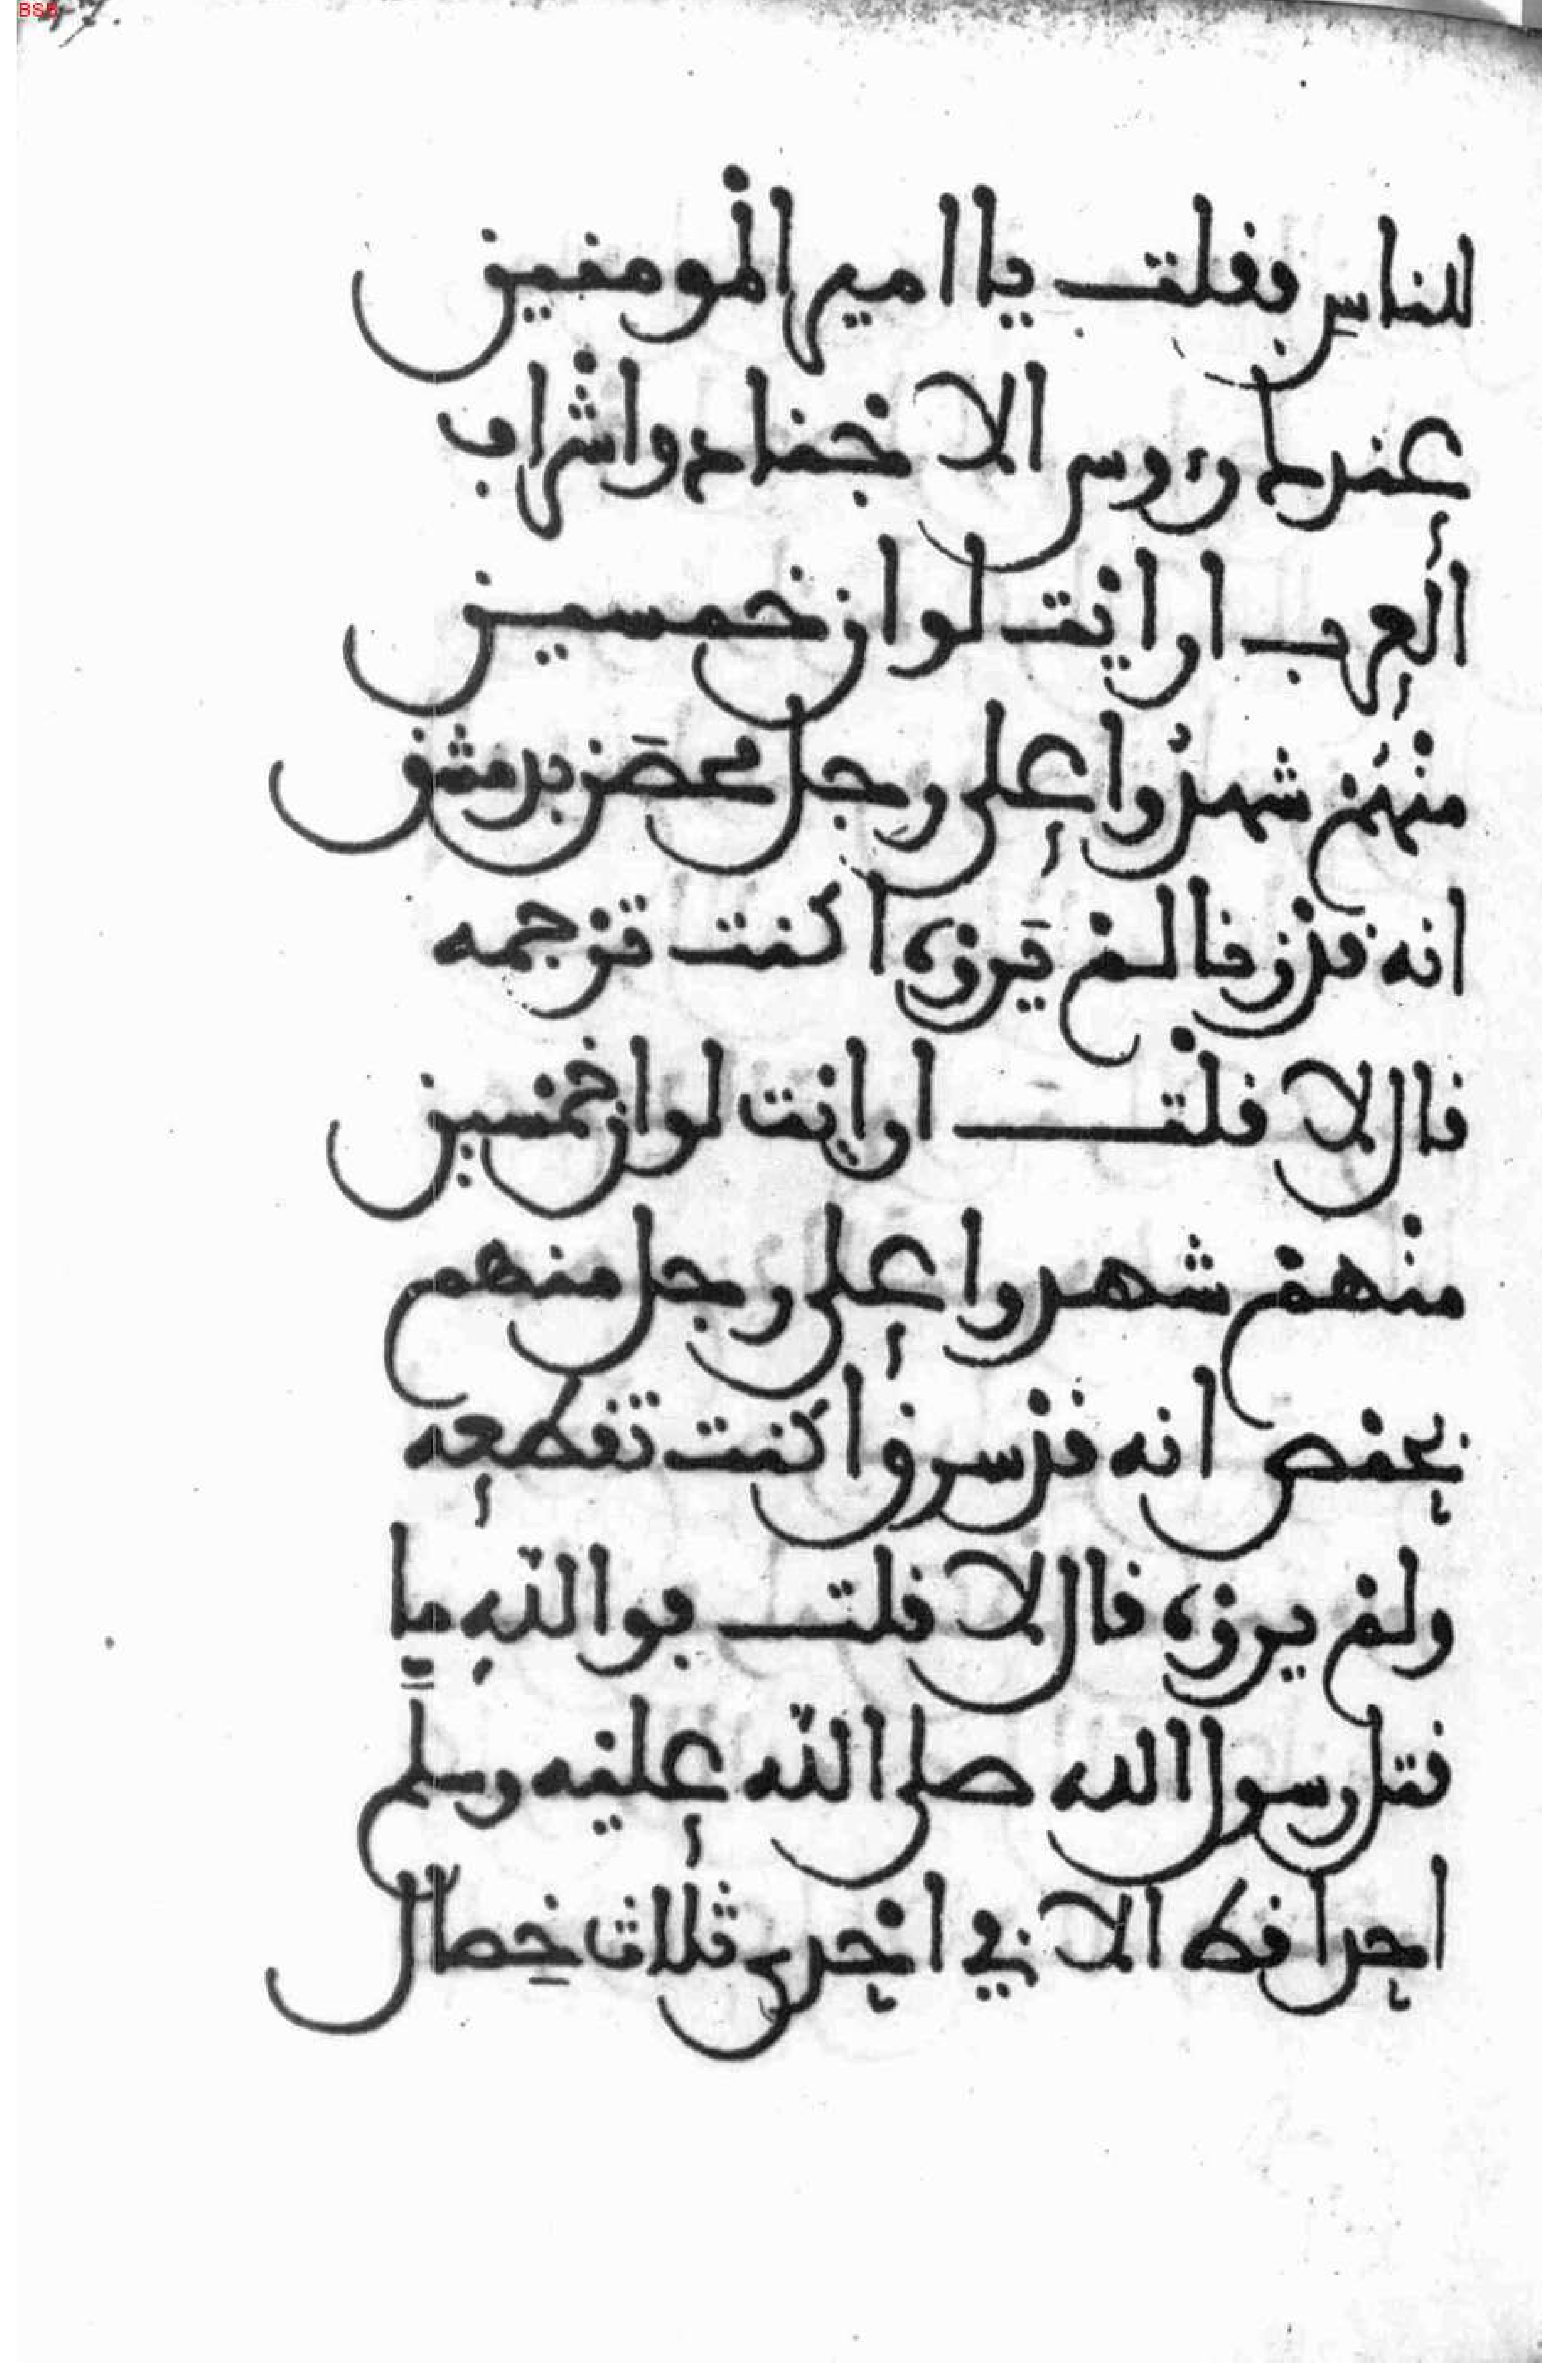 للناس فقلت يا امير المومنين
عندك رءوس الاجناد واشراف
العرب ارايت لو ان خمسين
منهم شهدوا على رجل محصن بدمشق
انه قد زنا لم يره اكنت ترجمه
قال لا قلت ارايت لو ان خمسين
منهم شهدوا على رجل منهم
بحمص انه قد سرق اكنت تقطعه
ولم يره قال لا قلت فوالله ما
قتل رسول الله صلى الله عليه وسلم
احدا قط الا في احدى ثلاث خصال